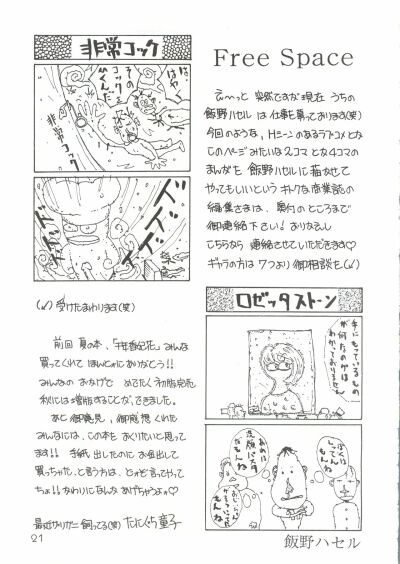 非常コック
はやく
そのコックを
ひくんだ
ズズズ
ズズズ
Free Space
え〜っと 突然ですが現在 うちの
飯野ハセル は仕事を募っております(笑)
今回のような、Hシーンのあるラブコメとか
このページみたいな2コマとか4コマの
まんがを 飯野ハセルに描かせて
やってもいいという 商業誌の
編集さまは、奥付のところまで
御連絡下さい! おりかえし
こちらから 連絡させていただきます♡
ギャラの方は 7つより 御相談を
受けたまわります(笑)
前回 夏の本、みんな
買ってくれて ほんとにありがとう!!
みんなの おかげで めでたく 初版完売
秋には増版することが、できました。
あと 御意見、御感想 くれた
みんなには、この本を おくりたいと思って
ます!! 手紙 出したのに お金出して
買っちゃった、と言う方は、どーぞ言ってやって
ちょ!! かわりになんか あげちゃうよん♡
最近ザリガニ 飼ってる(笑) たにぐち 童子
ロゼッタストーン
手にもっているものが
何なのかは
わかっておりません
ぼくは
しってんもんね
あれは
洗顔パスタ
だもんね
飯野ハセル
21